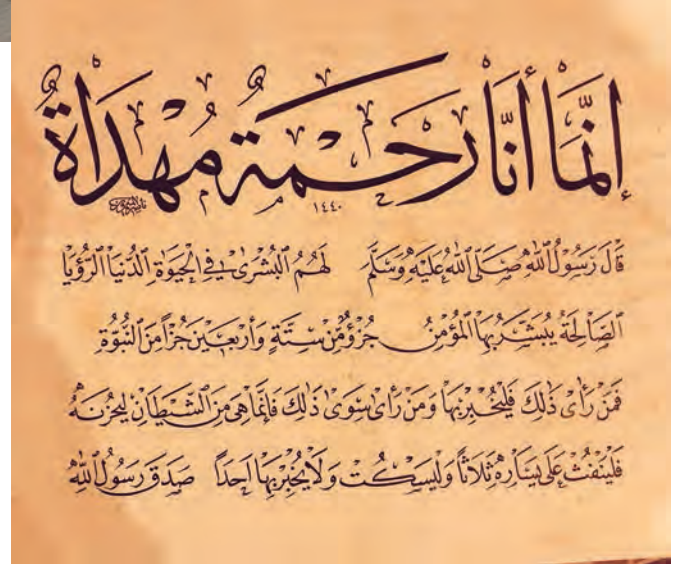 إِنَّمَا أَنَا رَحْمَةٌ مُهْدَاةٌ
١٤٤٠
قَالَ رَسُولُ اللّٰهِ صَلَّى اللّٰهُ عَلَيْهِ وَسَلَّمَ لَهُمُ الْبُشْرَىٰ فِي الْحَيَوٰةِ الدُّنْيَا الرُّؤْيَا
الصَّالِحَةُ يُبَشَّرُ بِهَا الْمُؤْمِنُ جُزْؤٌ مِّنْ سِتَّةٍ وَأَرْبَعِينَ جُزْأً مِنَ النُّبُوَّةِ
فَمَنْ رَأَىٰ ذٰلِكَ فَلْيُخْبِرْ بِهَا وَمَنْ رَأَىٰ سِوَىٰ ذٰلِكَ فَإِنَّمَا هِيَ مِنَ الشَّيْطَانِ لِيُحْزِنَهُ
فَلْيَنْفُثْ عَلَىٰ يَسَارِهِ ثَلَاثًا وَلْيَسْكُتْ وَلَا يُخْبِرْ بِهَا اَحَدًا صَدَقَ رَسُولُ اللّٰهِ